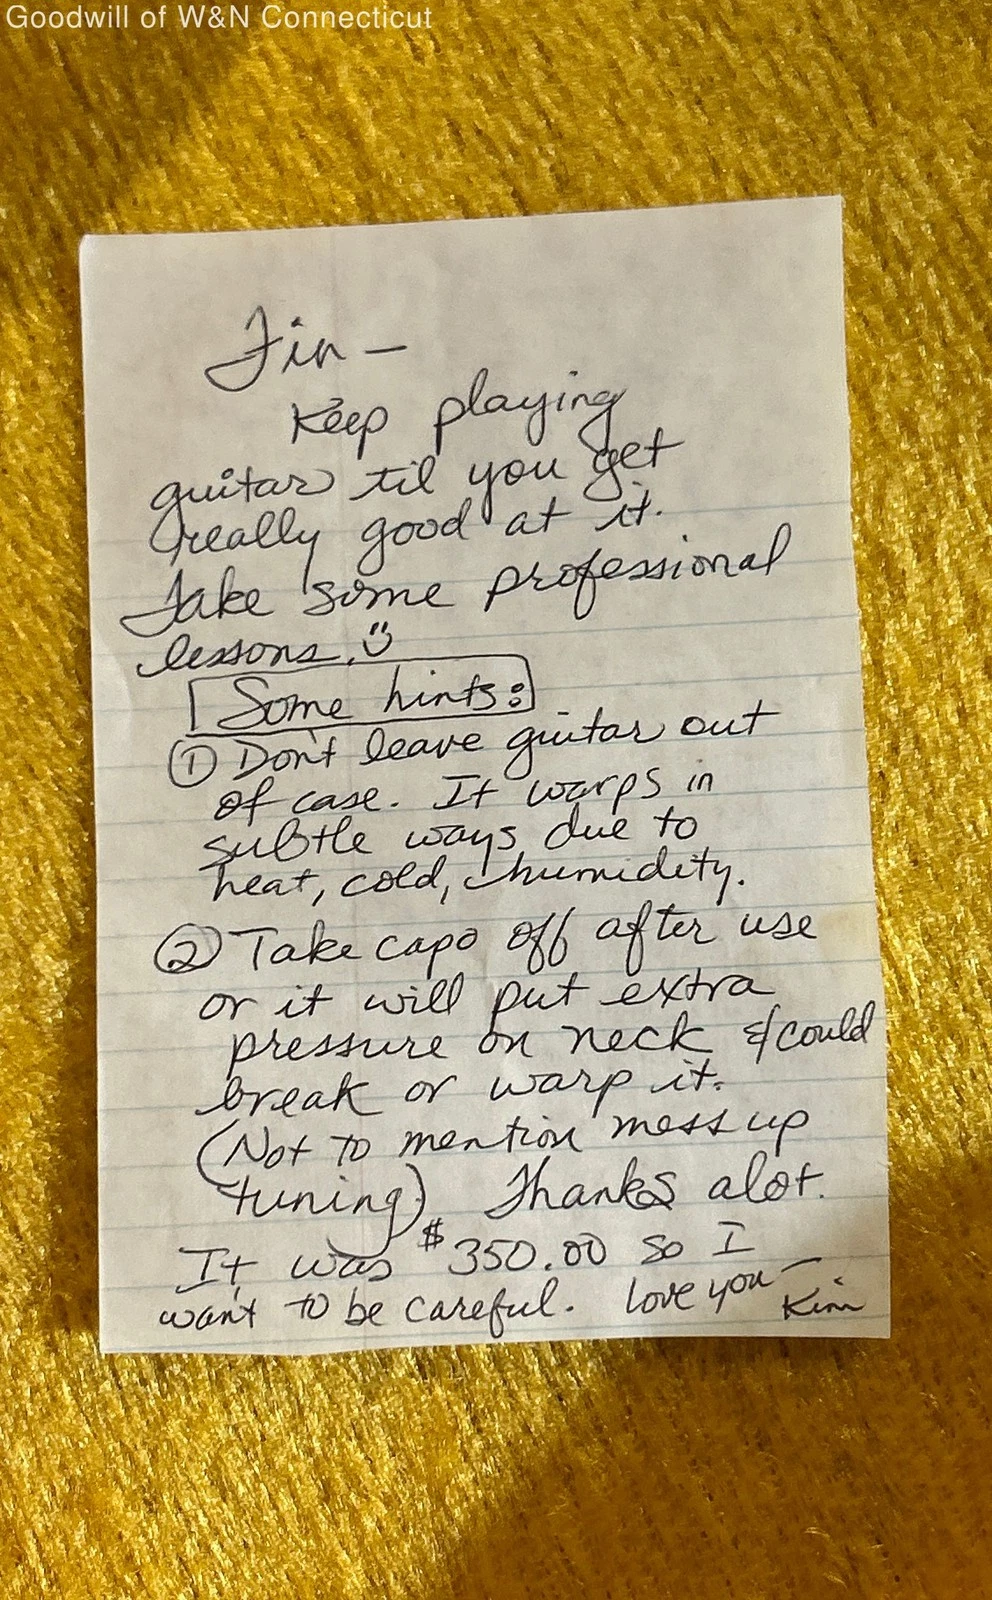 Goodwill of W&N Connecticut
Fin –
Keep playing
guitar til you get
really good at it.
Take some professional
lessons.
Some hints:
① Don't leave guitar out
of case. It warps in
subtle ways due to
heat, cold, humidity.
② Take capo off after use
or it will put extra
pressure on neck & could
break or warp it.
(Not to mention mess up
tuning) Thanks alot.
It was $350.00 so I
want to be careful. love you –
Kim